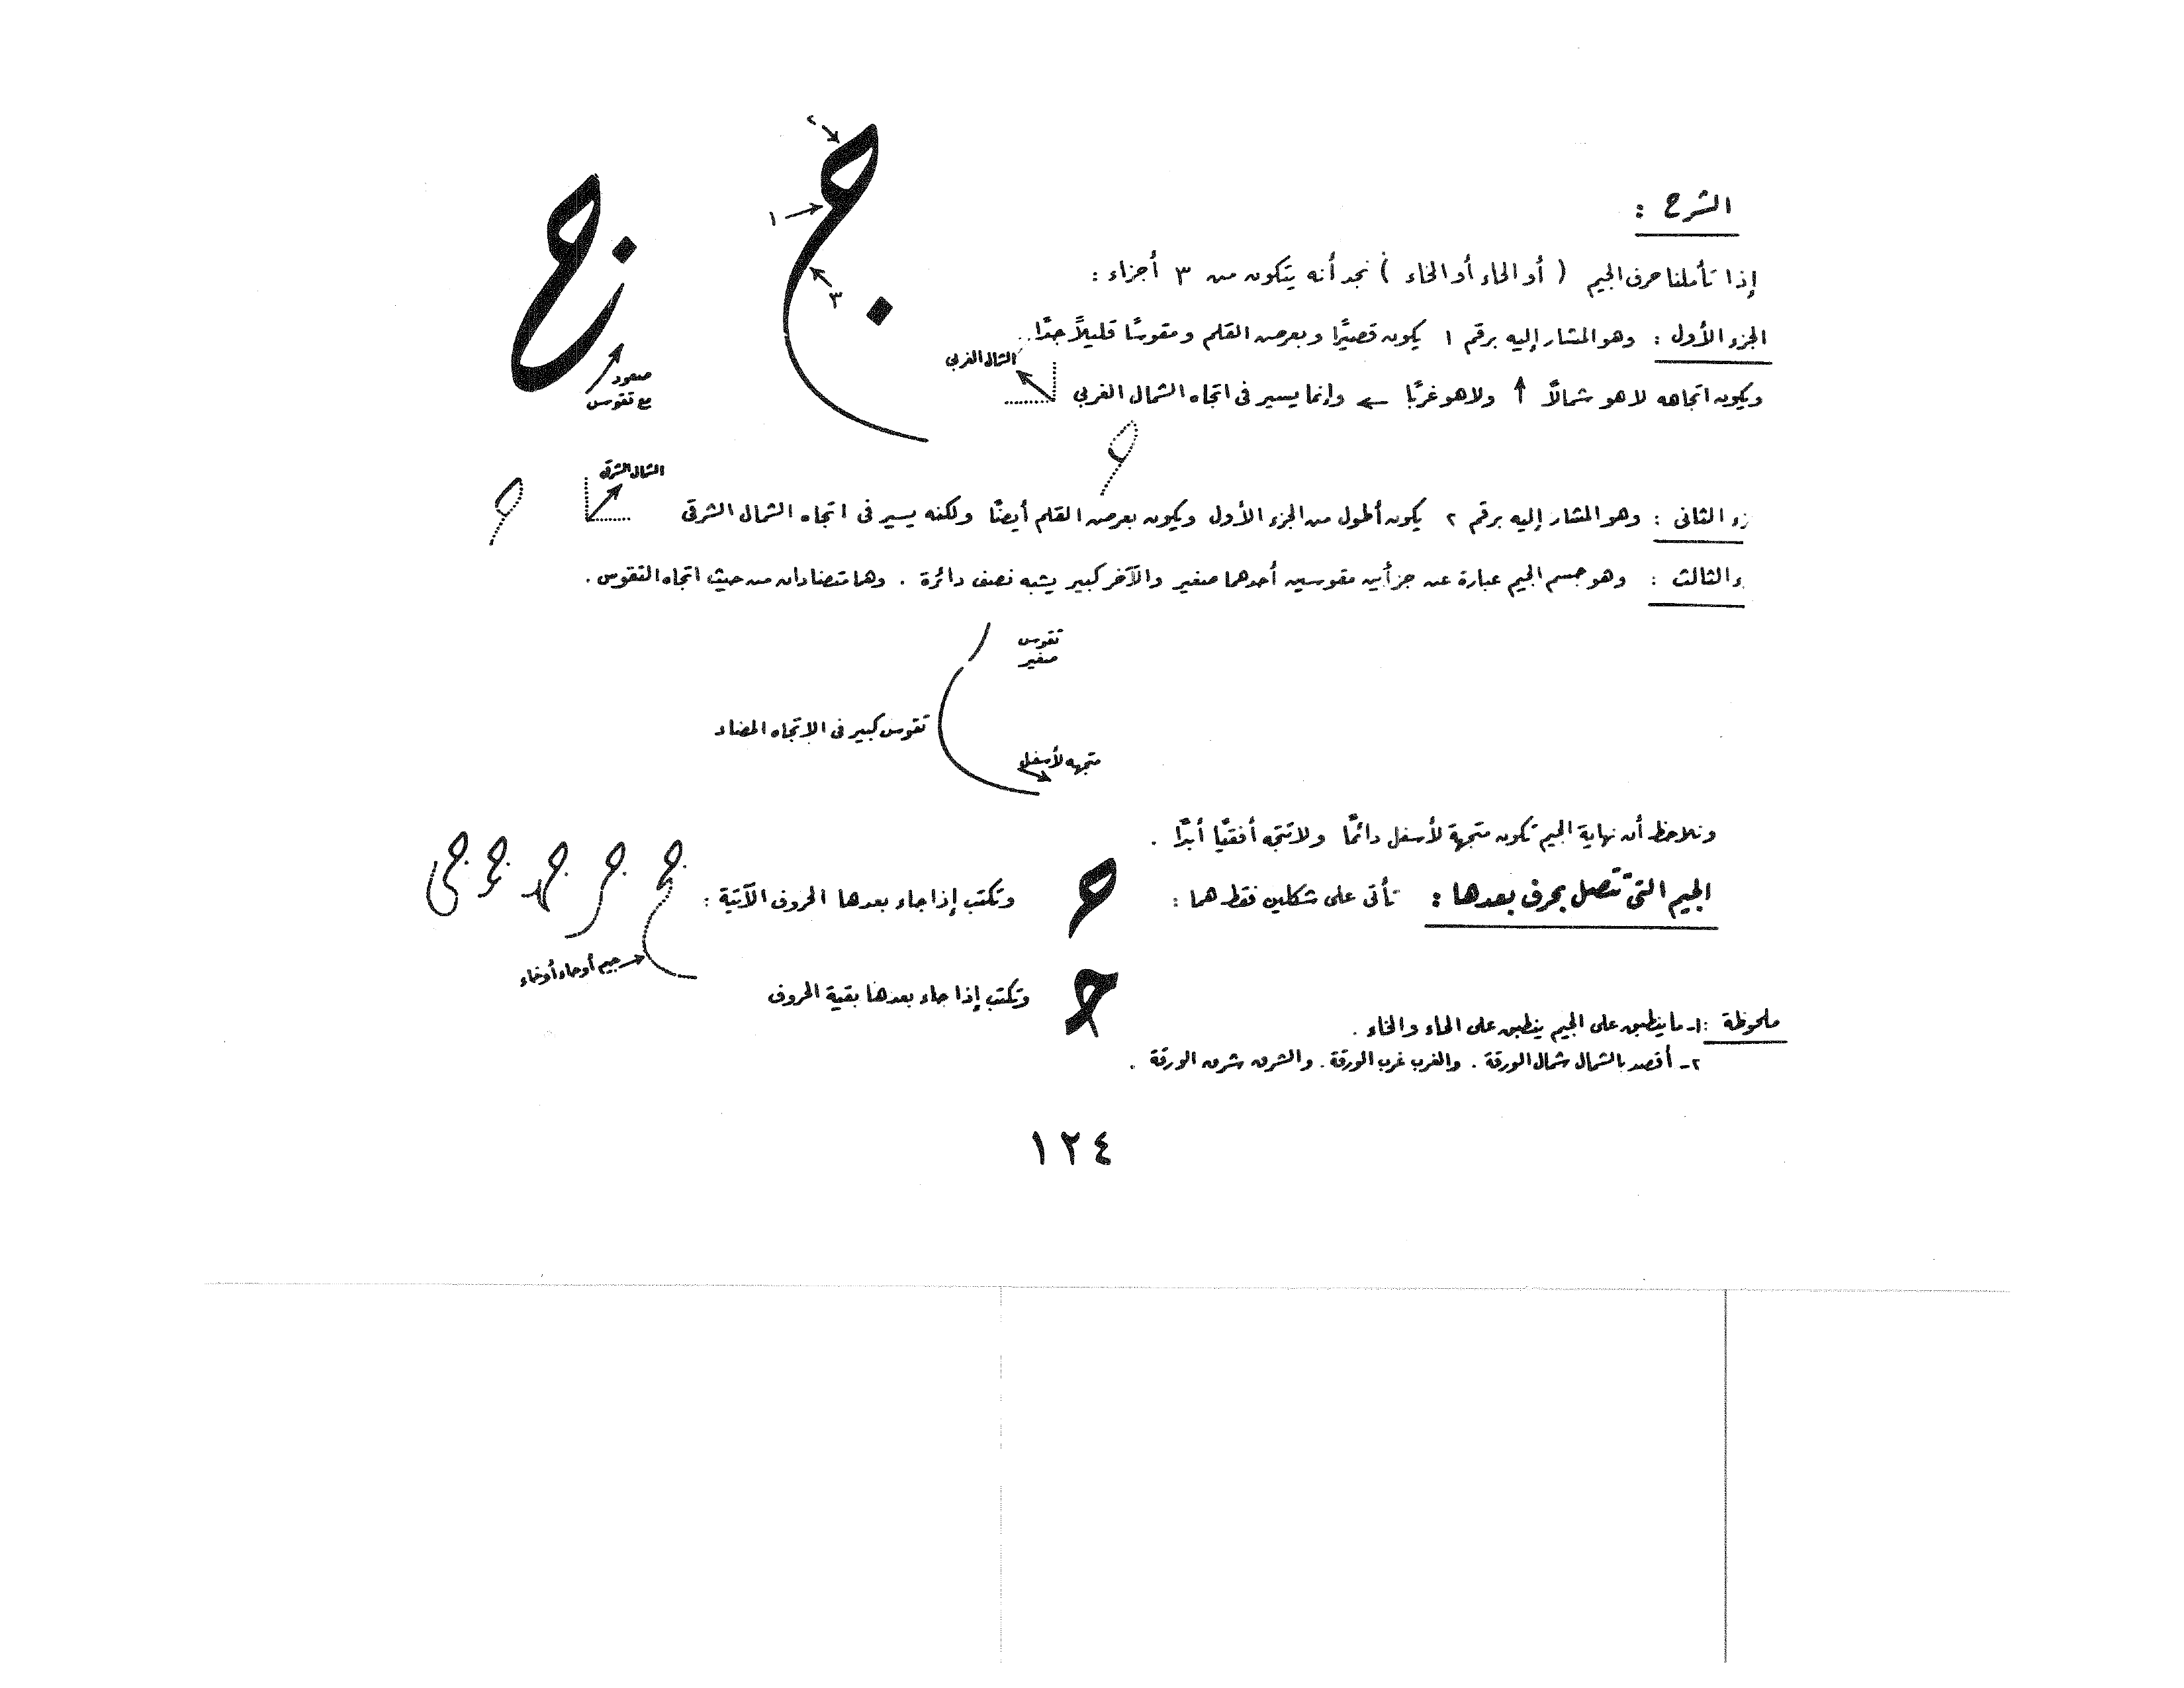 الشرح :
إذا تأملنا حرف الجيم ( أو الحاء أو الخاء ) نجد أنه يتكون من ٣ أجزاء :
الجزء الأول : وهو المشار إليه برقم ١ يكون قصيرًا وبعرض القلم ومقوسًا قليلاً جدًا..
ويكون اتجاهه لا هو شمالاً ↑ ولا هو غربًا ← وإنما يسير فى اتجاه الشمال الغربى
الشمال الغربى
٢
١
٣
صعود
مع تقوس
زء الثانى : وهو المشار إليه برقم ٢ يكون أطول من الجزء الأول ويكون بعرض القلم أيضًا ولكنه يسير فى اتجاه الشمال الشرقى
الشمال الشرقى
ء الثالث : وهو جسم الجيم عبارة عن جزأين مقوسين أحدهما صغير والآخر كبير يشبه نصف دائرة . وهما متضادان من حيث اتجاه التقوس .
تقوس
صغير
تقوس كبير فى الاتجاه المضاد
متجهه لأسفل
ونلاحظ أن نهاية الجيم تكون متجهة لأسفل دائمًا ولا تتجه أفقيًا أبدًا .
الجيم التى تتصل بحرف بعدها : تأتى على شكلين فقط هما :
وتكتب إذا جاء بعدها الحروف الآتية :
جيم أوحاء أوخاء
وتكتب إذا جاء بعدها بقية الحروف
ملحوظة : ١- ما ينطبق على الجيم ينطبق على الحاء والخاء .
٢- أقصد بالشمال شمال الورقة . والغرب غرب الورقة . والشرق شرق الورقة .
١٢٤